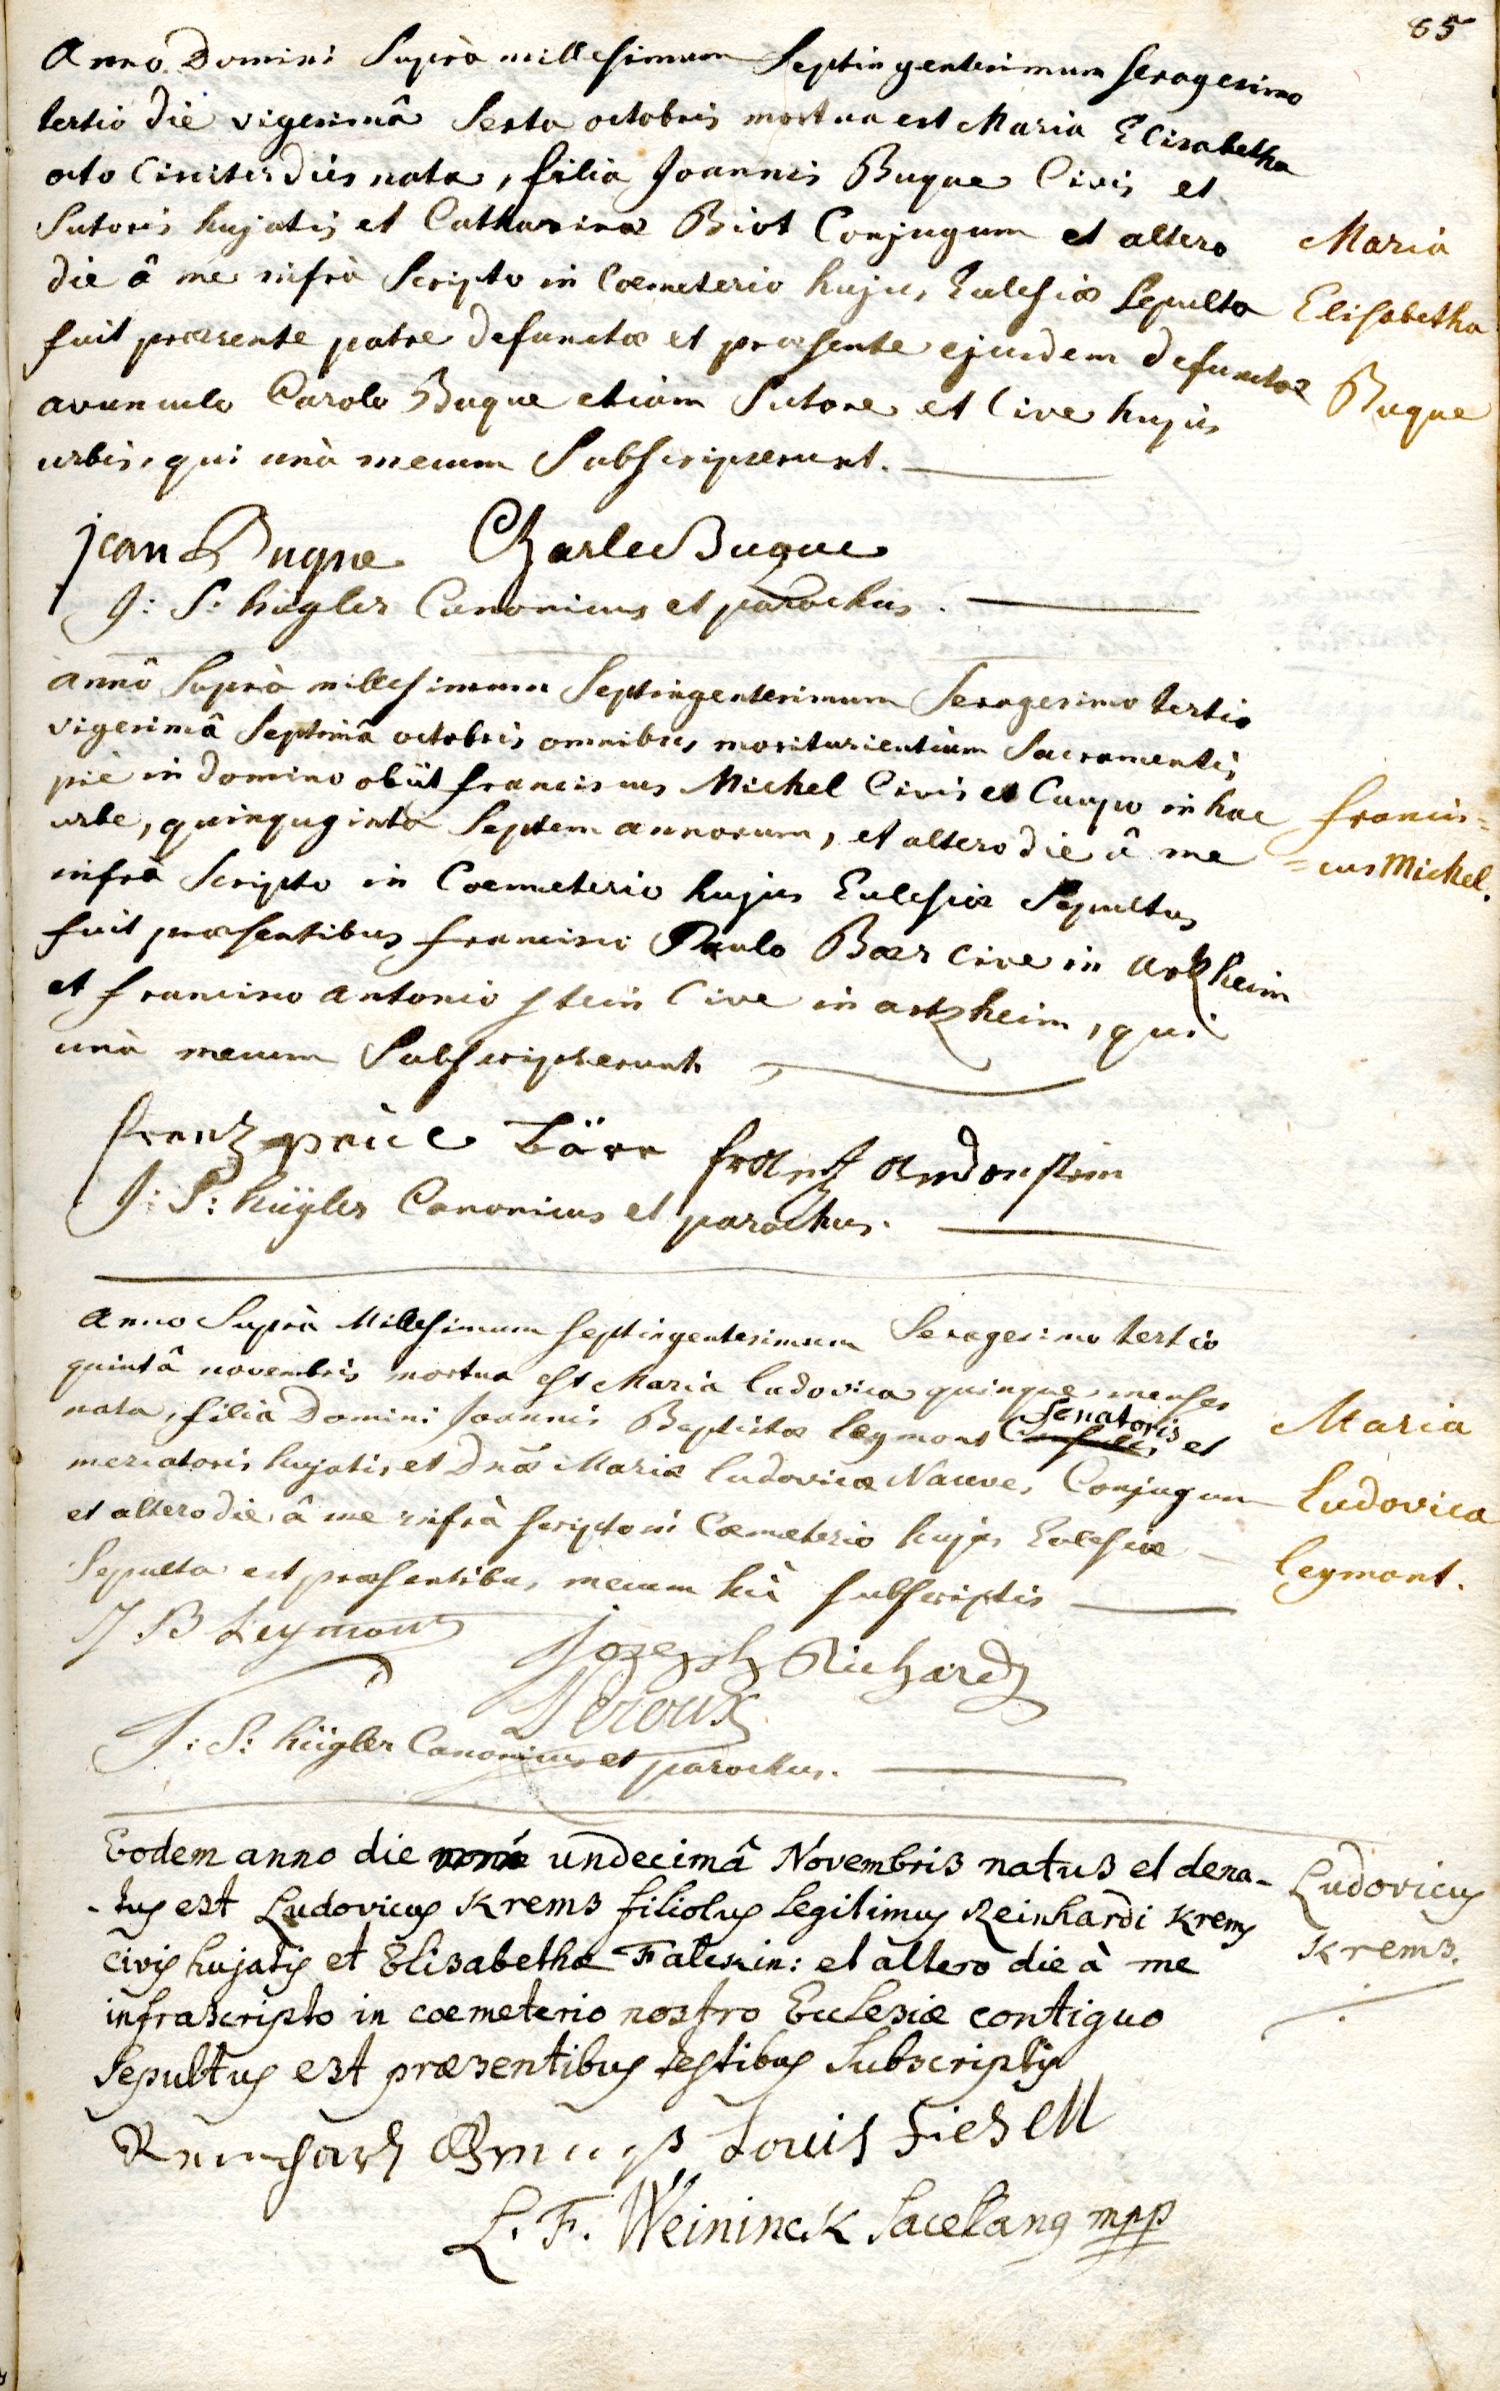 85
Anno Domini Suprà millesimum Septingentesimum sexagesimo
tertio die vigesimâ Sexta octobris mortua est Maria Elisabetha
octo Circiter dies nata, filia Joannis Buque Civis et
Sutoris hujatis et Catharinæ Biot Conjugum et altero
die â me infrà Scripto in Coemeterio hujus Ecclesiæ Sepulta
fuit præsente patre defunctæ et præsente ejusdem defunctæ
avunculo Carolo Buque etiam Sutore et Cive hujus
urbis, qui unà mecum Subscripserunt.
Maria
Elisabetha
Buque
jean Buque Charle Buque
J: S: hügler Canonicus et parochus.
annô Suprà millesimum Septingentesimum Sexagesimo tertio
vigesimâ Septimâ octobris omnibus moriturientium Sacramentis
piè in domino obiit franciscus Michel Civis et Caupo in hac
urbe, quinquginta Septem annorum, et altero die â me
infrà Scripto in Coemeterio hujus Eclesiæ Sepultus
fuit præsentibus francisci Paulo Bær cive in artzheim
et francisco antonio stein Cive in artzheim, qui
unà mecum Subscripserunt
francis=
=cus Michel.
frantz Bärr frantz andon stein
J: S: hügler Canonicus et parochus.
Anno Suprà Millesimum septingentesimum Sexagesimo tertio
quintâ novembris mortua est Maria ludovica quinque menses
nata, filia Domini Joannis Baptistæ leymont Senatoris et
mercatoris hujatis, et Dnæ Mariæ ludovicæ Nauve, Conjugum
et altero die â me infrà scripto in Cœmeterio hujus Ecclesiæ
Sepulta est præsentibus mecum hìc subscriptis
Maria
Ludovica
leymont.
J B Leymont Joseph Richard
Leroux
J: S: hügler Canonicus et parochus.
Eodem anno die undecimâ Novembris natus et dena-
-tus est Ludovicus Krems filiolus legitimus Reinhardi Krems
civis hujatis et Elisabethæ : et altero die à me
infrascripto in cœmeterio nostro Ecclesiæ contiguo
Sepultus est præsentibus testibus Subscriptis
Ludovicus
Krems.
Louis Fiesell
L. F. Weininck Sacellanus mpp